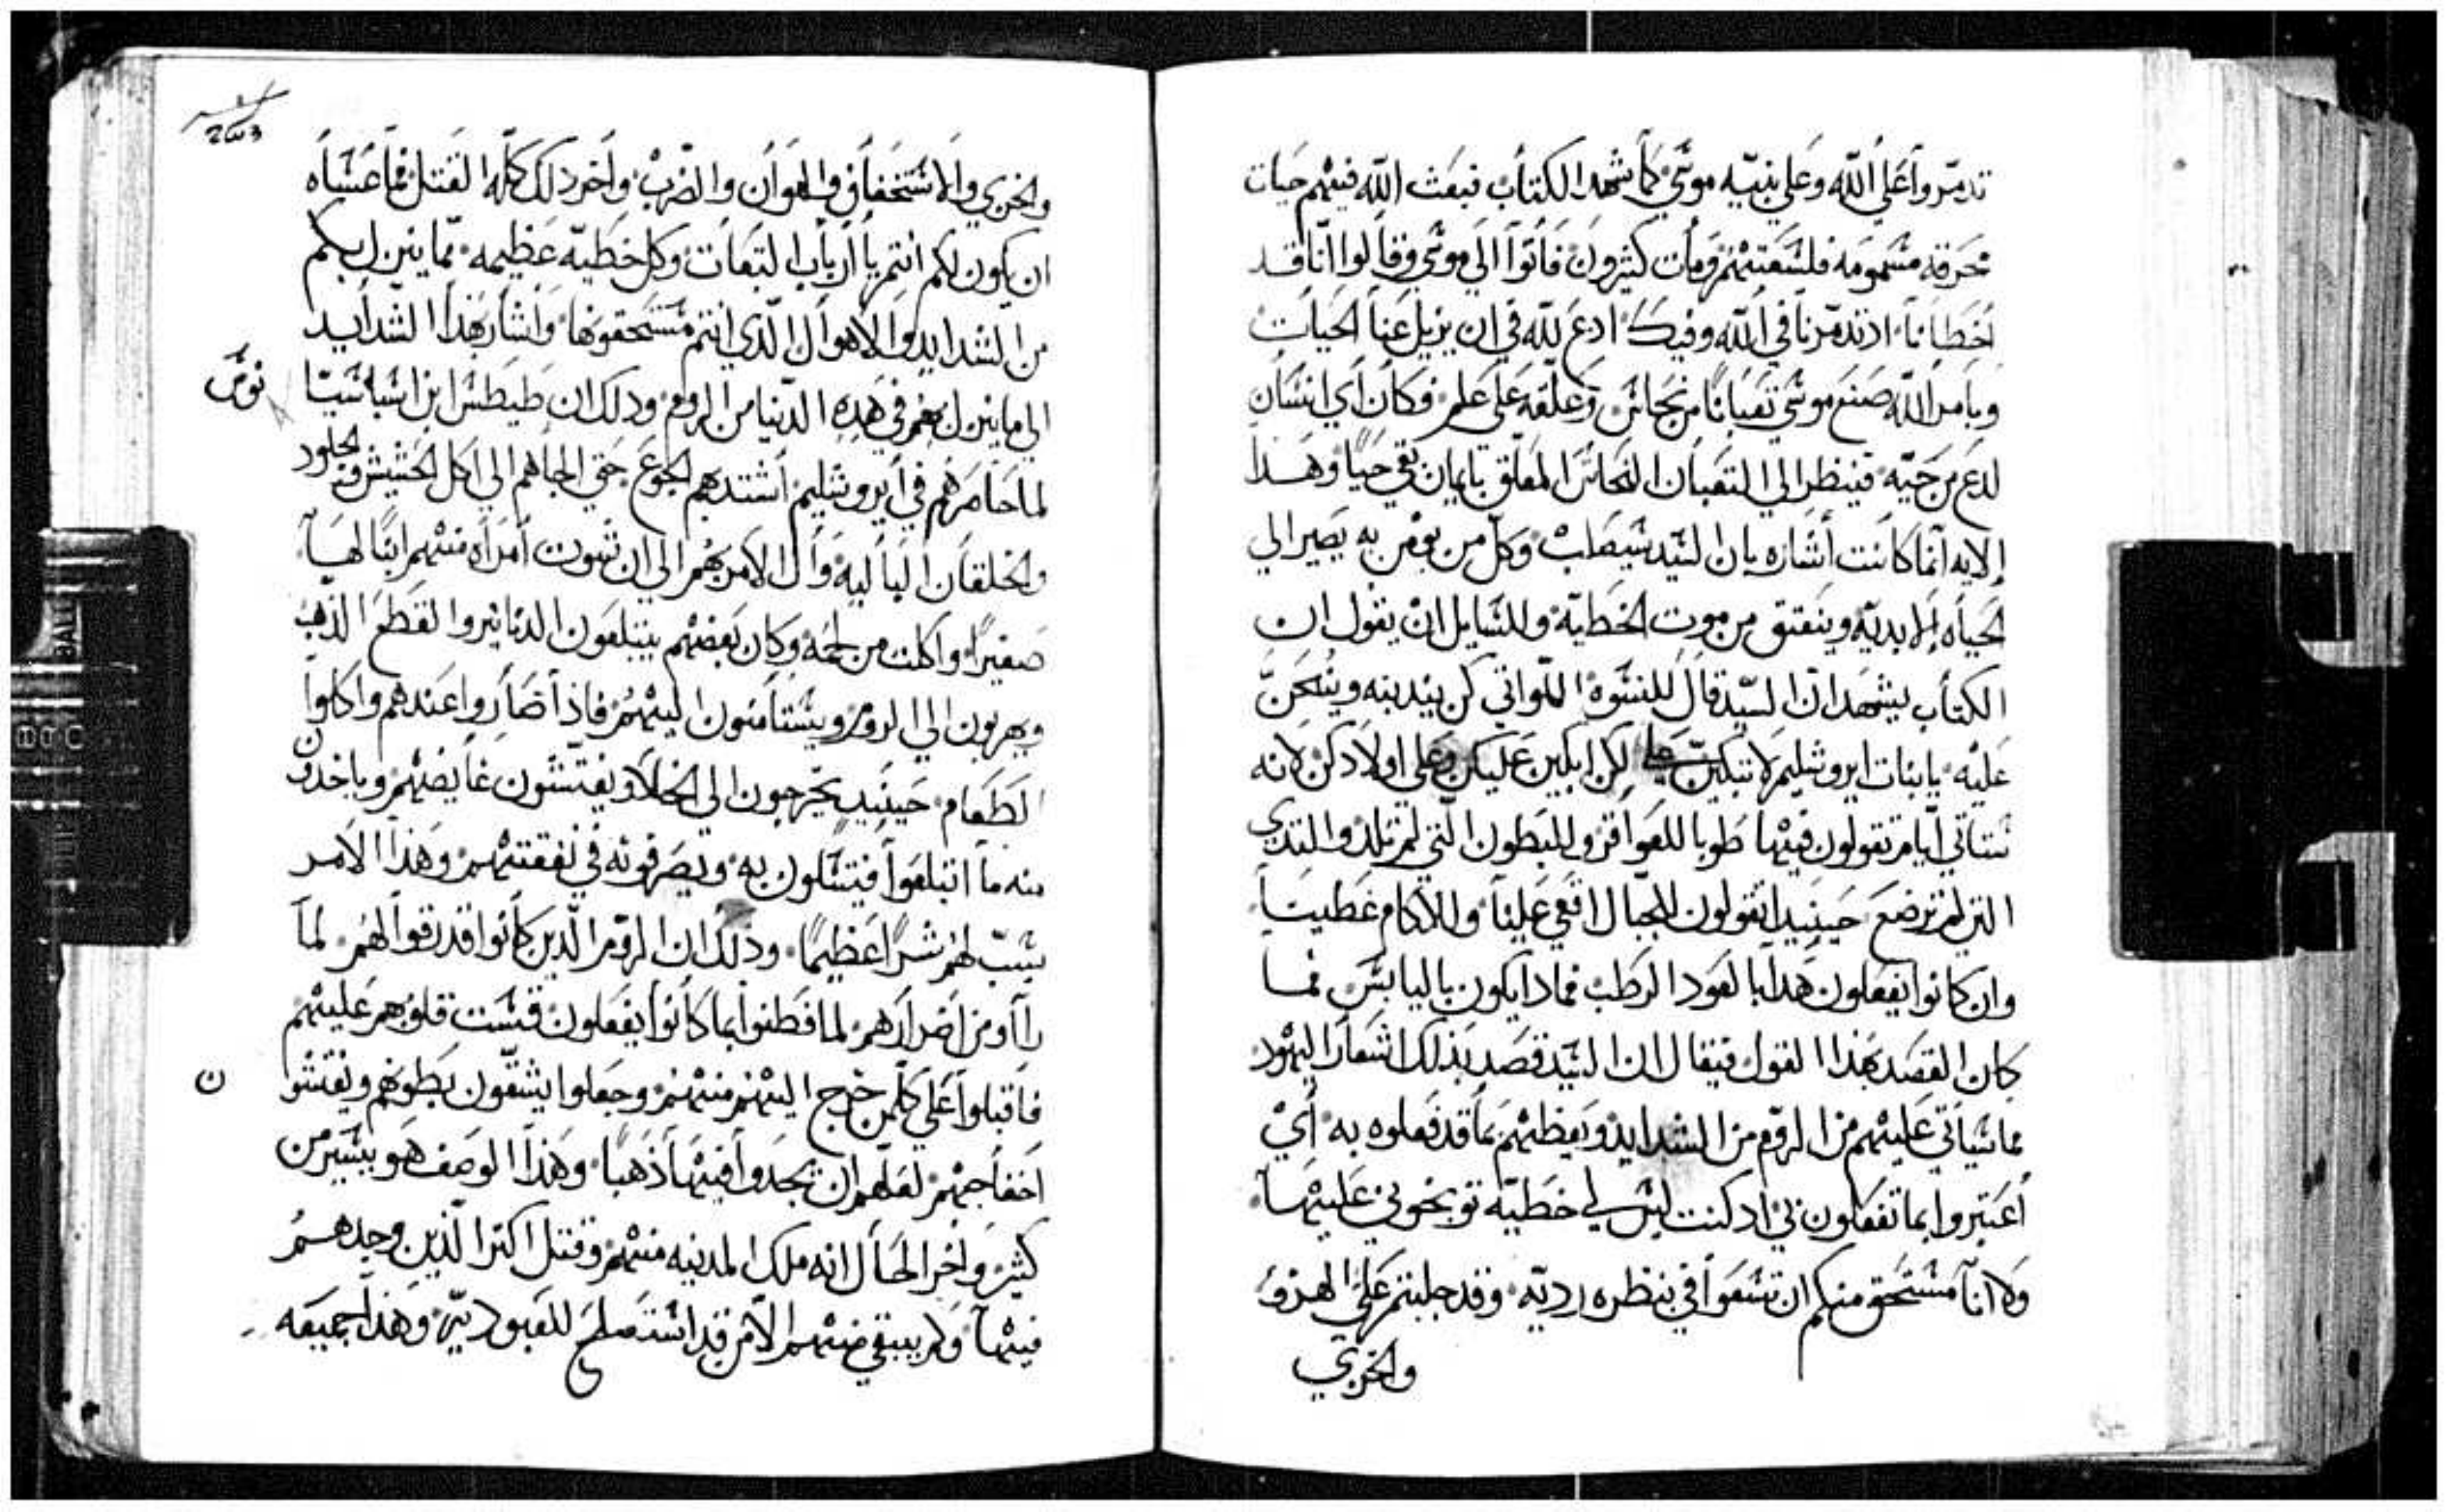 تدمّروا على الله وعلى نبيّه موسى كما شهد الكتاب فبعث الله فيهم حيات
محرقه مسمومه فلسعتهم ومات كثيرون فأتوا الى موسى وقالوا انّا قد
اخطانا اذ تدمّرنا في الله وفيك ادع لله في ان يزيل عنا الحيات
وبامر الله صنع موسى تعبانًا من نحاس وعلّقه على علم فكان أي انسان
لدع من حيّه فينظر الى التعبان النحاس المعلّق بايمان بقي حيًا وهذا
الايه انما كانت أشاره بان السيّد سيصلب وكل من يومن به يصير الي
الحياه الابديّه وينعتق من موت الخطيّه وللسايل ان يقول ان
الكتاب يشهد انّ السيّد قال للنسوه اللواتي كن يندبنه وينحن
عليه يا بنات ايروشليم لا تبكين علي لكن ابكين عليكن وعلى اولادكن لانه
ستاتي ايام تقولون فيها طوبا للعواقر وللبطون التي لم تلد والتدي
التي لم ترضع حينيدا تقولون للجبال اقعي علينا وللاكام غطينا
وان كانوا يفعلون هذا بالعود الرطب فمادا يكون باليابس فما
كان القصد بهذا القول فيقال ان السيّد قصد بذلك اشعار اليهود
بما سياتي عليهم من الروم من الشدايد ويعظهم بما قد فعلوه به أي
أعتبروا بما تفعلون بي اد كنت ليس لي خطيّه توبخوني عليها
ولا انا مستحق منكم ان تسعوا في بنظره رديّه وقد جلبتم علي الهزؤ
والخزي
2003
والخزي والاستخفاف والهوان والضرب وأخر دلك كلّه القتل فما عساه
ان يكون لكم انتم يا أرباب التبعات وكل خطيّه عظيمه ممّا ينزل بكم
من الشدايد والاهوال الّدي انتم مستحقونها وأشار بهذا الشدايد
الي ما ينزل بهم في هذه الدّنيا من الروم ودلك ان طيطس ابن اسباسيا
نوس
لما حاصرهم في أيروشليم أشتد بهم الجوع حتى الجاهم الي اكل الحشيش والجلود
والخلقان الباليه وآل الامر بهم الي ان شوت أمرأه منهم ابنًا لها
صغيرًا واكلت من لحمه وكان بعضهم يبتلعون الدنانير والقطع الذهب
ويهربون الي الروم ويستأمنون اليهم فاذا صاروا عندهم واكلوا
الطعام حينيد يخرجون الى الخلا ويفتشون غايضهم وياخدون
منه ما ابتلعوا فيتسلون به ويصرفونه في نفقتهم وهذا الامر
سبّب لهم شرًا عظيمًا ودلك ان الروم الّدين كانوا قد رقوا لهم لما
رأوا من اضرارهم لما فطنوا بما كانوا يفعلون قست قلوبهم عليهم
فاقبلوا على كلّمن خرج اليهم منهم وجعلوا يشقّون بطونهم ويفتشو
ن
اخفاجهم لعلهم ان يجدوا فيها ذهبًا وهذا الوصف هو يسير من
كثير وأخر الحال انه ملك المدينه منهم وقتل اكثر الّذين وجدهم
فيها ولم يبقي منهم الا من قد استصلح للعبوديّه وهذا جميعه